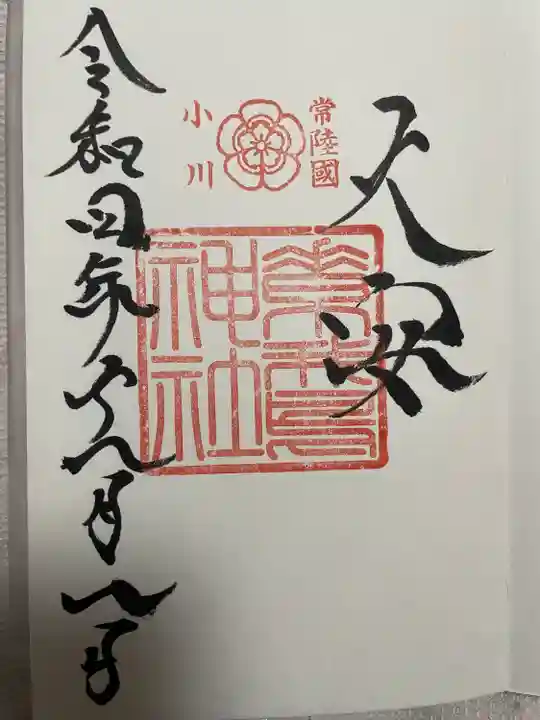 天安
常陸國
小川
素鵞
神社
令和四年八月八日